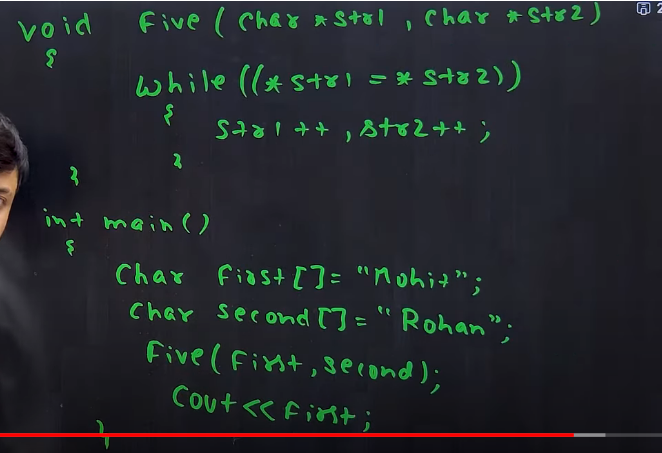 void Five ( char *str1 , char *str2 )
{
while ((*str1 = *str2))
{
str1++ , str2++ ;
}
}
int main()
{
Char First[]= "Mohit";
Char second[]= "Rohan";
Five(First,second);
Cout<<First;
}
2